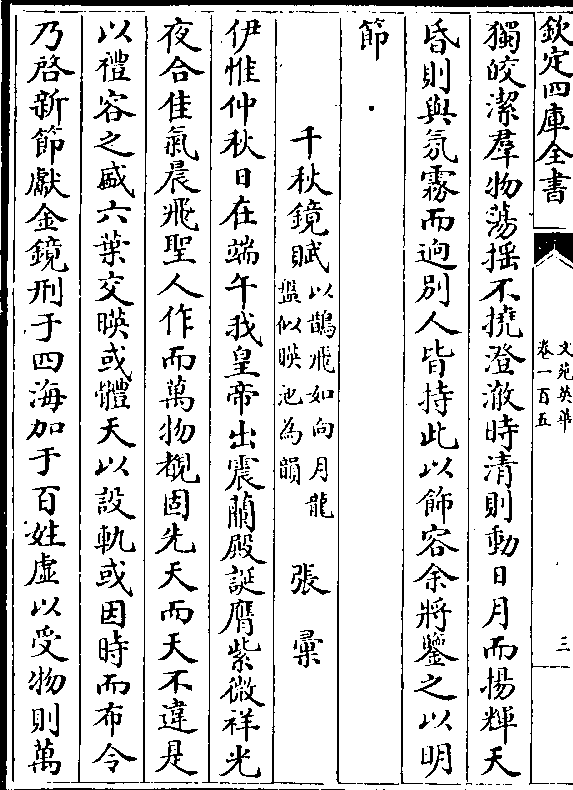 欽定四庫全書
文苑英華
卷一百五
三
獨皎潔羣物蕩揺不撓澄澈時清則動日月而揚輝天
昏則與氛霧而逈別人皆持此以飾容余將鑒之以明
節
千秋鏡賦
以鵲飛如向月龍
盤似暎池為韻
張彚
伊惟仲秋日在端午我皇帝出震蘭殿誕膺紫微祥光
夜合佳氣晨飛聖人作而萬物覩固先天而天不違是
以禮容之盛六葉交暎或體天以設軌或因時而布令
乃啓新節獻金鏡刑于四海加于百姓虛以受物則萬